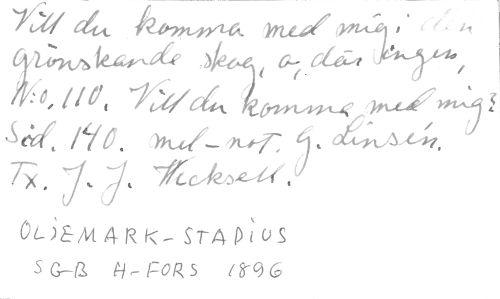 Vill du komma med mig i den
grönskande skog, o, där ingen,
N:o. 110. Vill du komma med mig?
Sid. 140. mel-not. G. Linsén.
Tx. J. J. Wecksell.
OLJEMARK-STADIUS
SGB H-FORS 1896